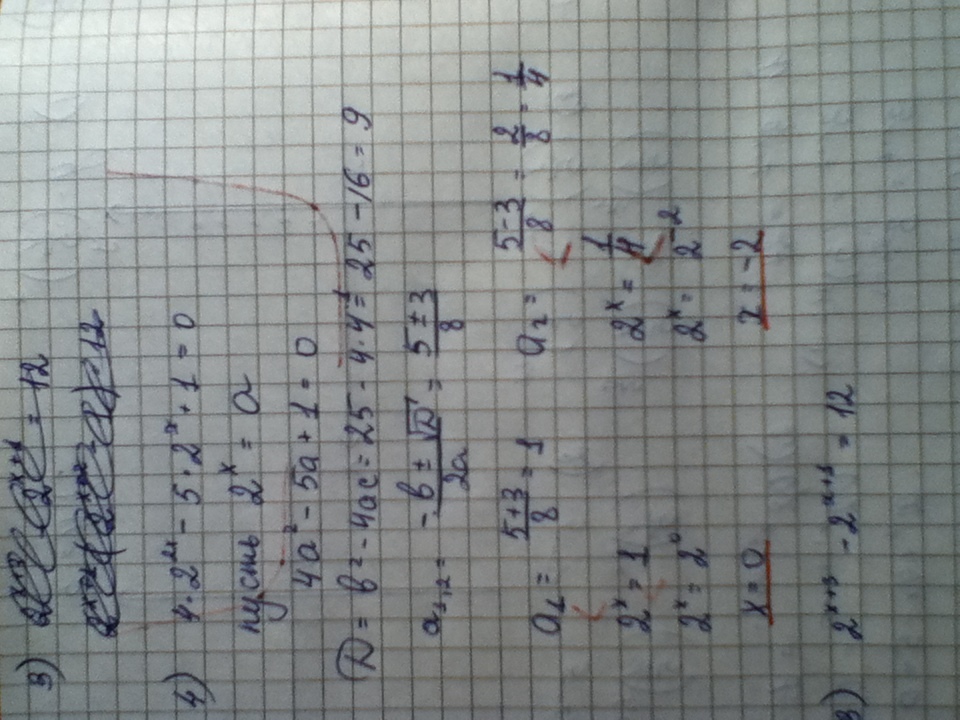 3) 2^{x+3} - 2^{x+1} = 12
4) 4·2^{2x} - 5·2^x + 1 = 0
пусть 2^x = a
4a² - 5a + 1 = 0
D = b² - 4ac = 25 - 4·4·1 = 25 - 16 = 9
a_{1,2} = \frac{-b ± √D}{2a} = \frac{5 ± 3}{8}
a_1 = \frac{5+3}{8} = 1 a_2 = \frac{5-3}{8} = \frac{2}{8} = \frac{1}{4}
2^x = 1 2^x = \frac{1}{4}
2^x = 2^0 2^x = 2^{-2}
x = 0 x = -2
3) 2^{x+3} - 2^{x+1} = 12